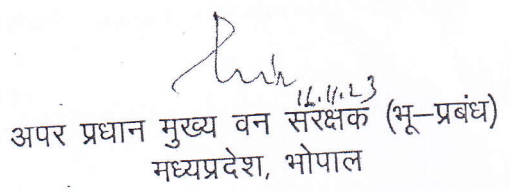 16.11.23
अपर प्रधान मुख्य वन संरक्षक (भू–प्रबंध)
मध्यप्रदेश, भोपाल